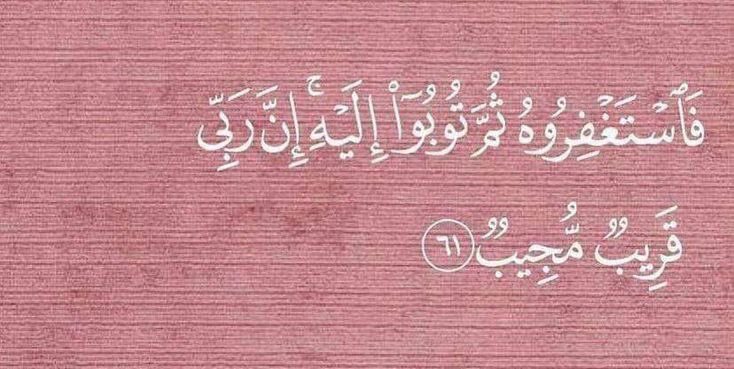 فَٱسْتَغْفِرُوهُ ثُمَّ تُوبُوٓا۟ إِلَيْهِ ۚ إِنَّ رَبِّى
قَرِيبٌ مُّجِيبٌ ٦١